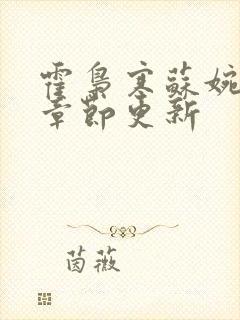 霍梟寒蘇婉
章節更新
茵薇